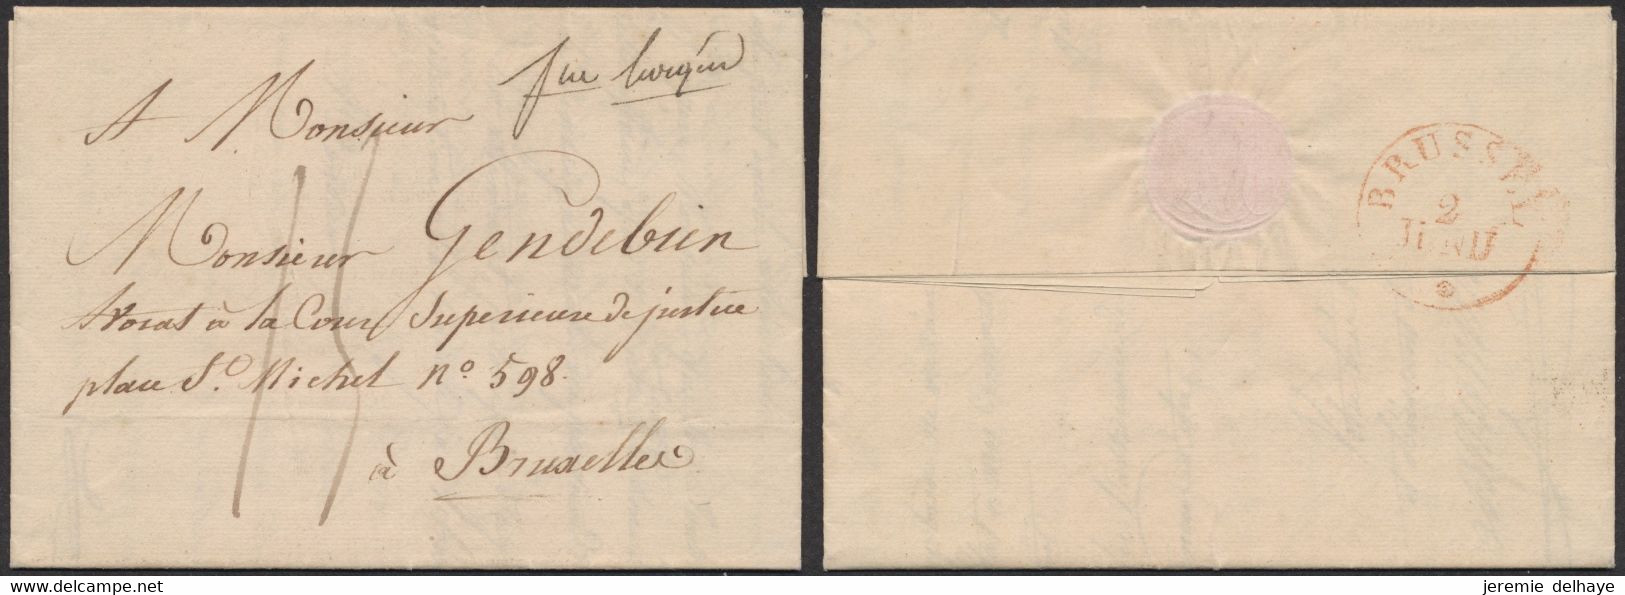 A Monsieur
Monsieur Gendebien
Avocat à la Cour Superieure de justice
place St. Michel no 598.
à Bruxelles
15
BRUSSEL
2
JUNIJ
www.delcampe.net
jeremie delhaye